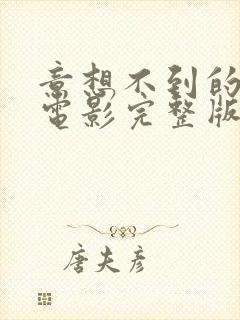 意想不到的
电影完整版
唐夫彦